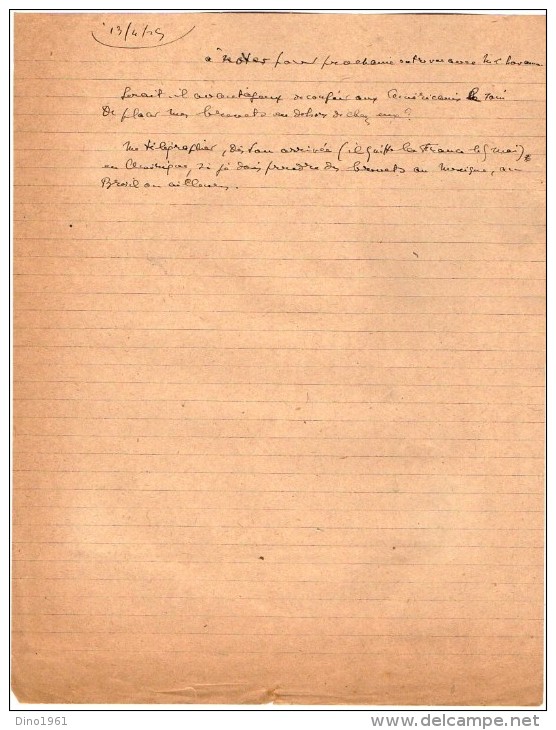 à noter pour prochaine
Serait-il avantageux de confier aux Américains le soin
De placer mes brevets en dehors de chez eux ?
Me télégraphier, dès son arrivée (il quitte la France le 5 mai)
en Amérique, si je dois prendre des brevets au Mexique, au
Brésil ou ailleurs.
Dino1961
www.delcampe.net